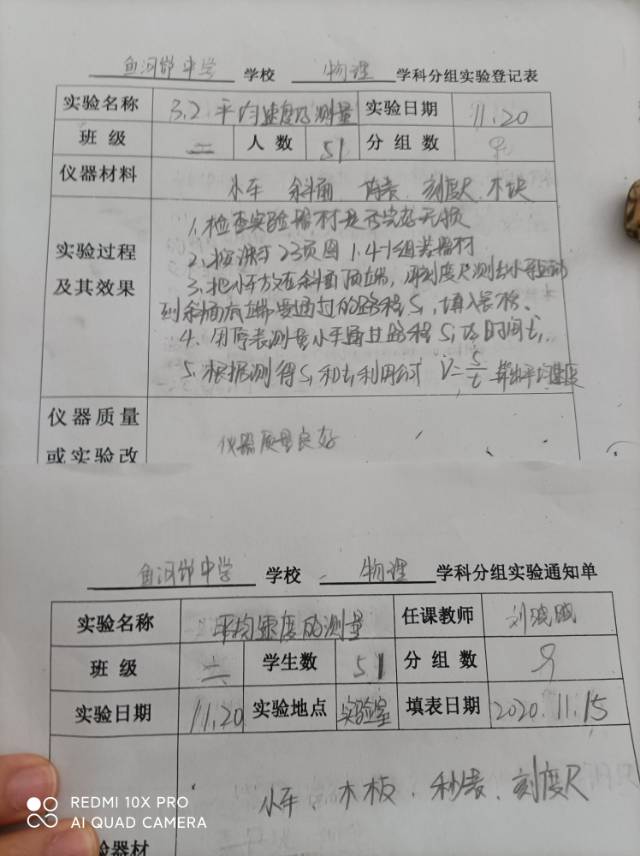 鱼河峁中学 学校 物理 学科分组实验登记表
实验名称 3.2 平均速度的测量 实验日期 11.20
班级 二 人数 51 分组数 9
仪器材料 小车 斜面 停表. 刻度尺. 木块
实验过程及其效果
1. 检查实验器材是否完好无损
2. 按课本23页图1.4-1组装器材
3. 把小车放在斜面顶端, 用刻度尺测出小车运动
到斜面底端要通过的路程S₁, 填入表格.
4. 用停表测量小车通过路程S₁的时间t₁.
5. 根据测得S₁和t₁利用公式 V=s/t 算出平均速度
仪器质量 仪器质量良好
或实验改
鱼河峁中学 学校 物理 学科分组实验通知单
实验名称 平均速度的测量 任课教师 刘
班级 二 学生数 51 分组数 9
实验日期 11.20 实验地点 实验室 填表日期 2020.11.15
小车、木板、秒表、刻度尺
验器材
REDMI 10X PRO
AI QUAD CAMERA